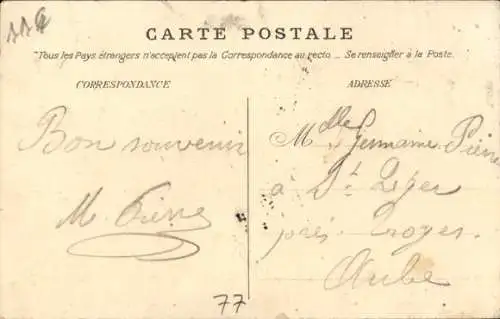 116
CARTE POSTALE
"Tous les Pays étrangers n'acceptent pas la Correspondance au recto _ Se renseigner à la Poste.
CORRESPONDANCE
ADRESSE
Bon souvenir
M Pierre
Mdlle Germaine Pierre
à St Léger
près Troyes.
Aube
77